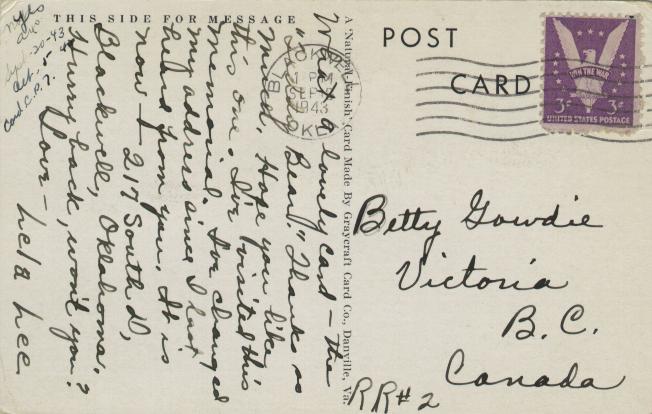 THIS SIDE FOR MESSAGE
What a lovely card - the
"Bear." Thanks so
much. Hope you like
this one. I've visited this
memorial. I've changed
my address since I last
heard from you. It is
now - 217 South D,
Blackwell, Oklahoma.
Hurry back, won't you?
Love -
Lela Lee
Sept-20-43
A "Natural-Finish" Card Made By Graycraft Card Co., Danville, Va.
BLACKWELL
1 PM
SEP
1943
OKLA
POST
CARD
WIN THE WAR
3¢ 3¢
UNITED STATES POSTAGE
Betty Gowdie
Victoria
B.C.
Canada
RR#2